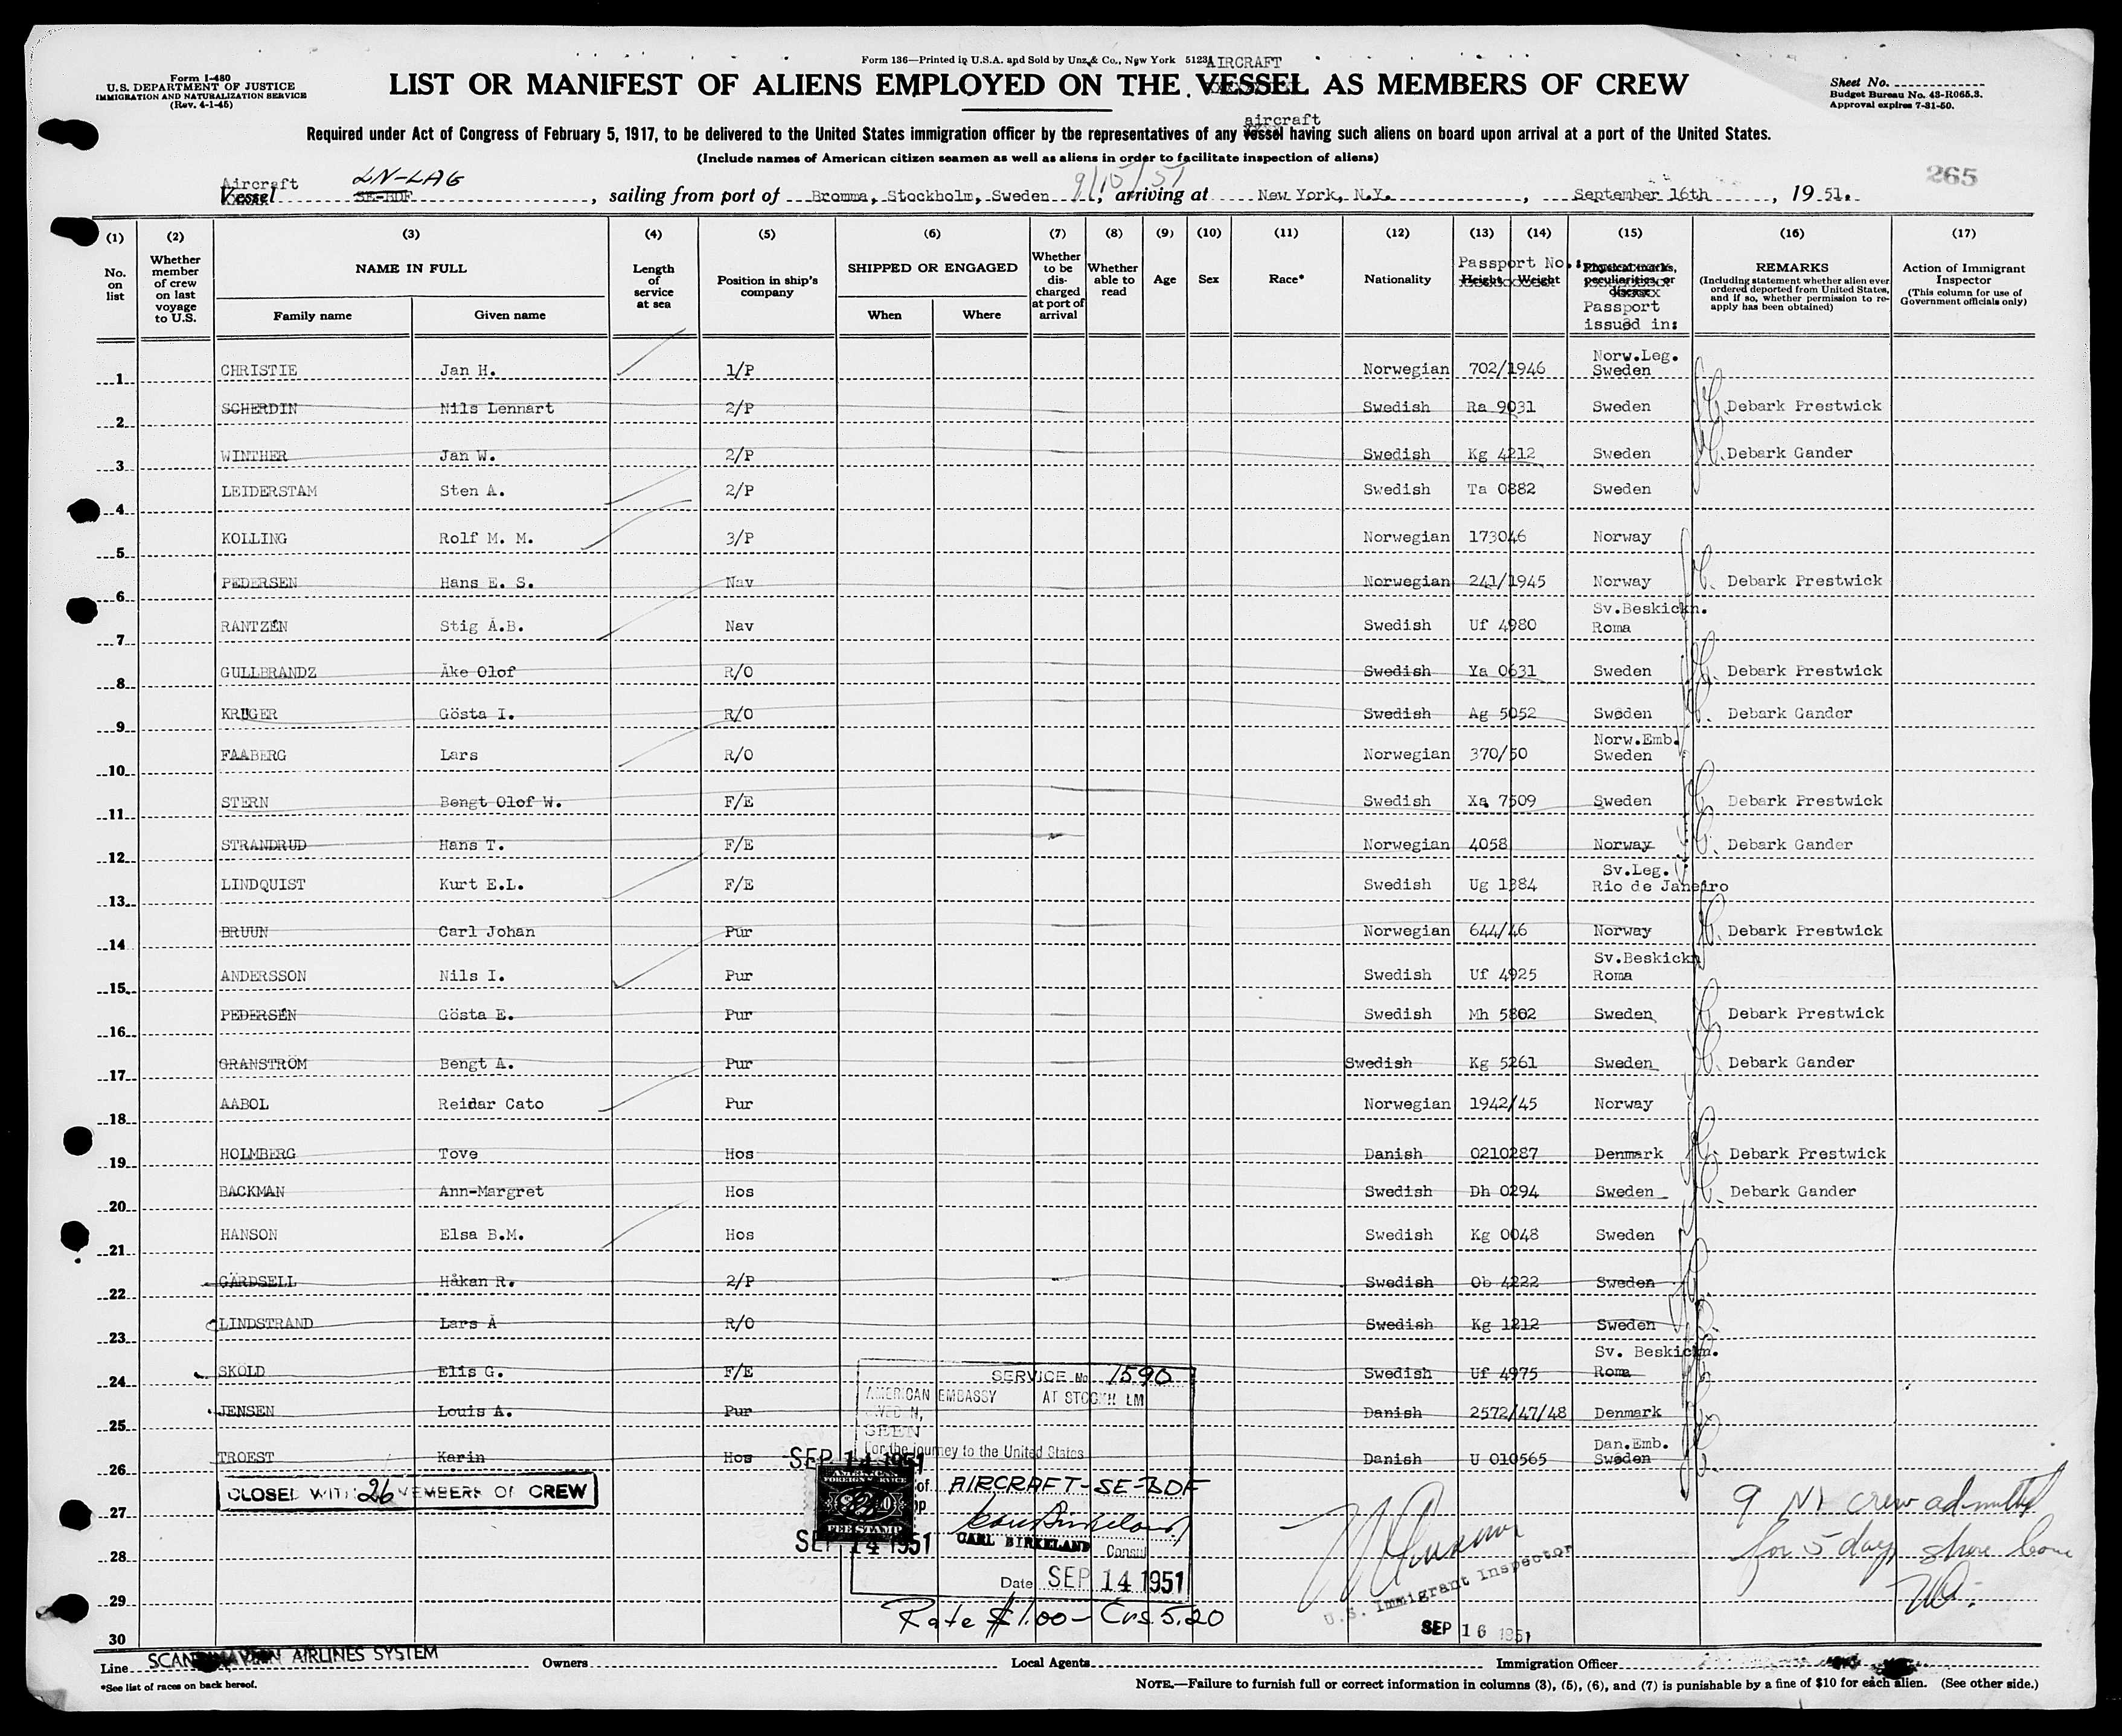 Form 136—Printed in U.S.A. and Sold by Unz & Co., New York 5123
Form I-480
U.S. DEPARTMENT OF JUSTICE
IMMIGRATION AND NATURALIZATION SERVICE
(Rev. 4-1-45)
AIRCRAFT
LIST OR MANIFEST OF ALIENS EMPLOYED ON THE VESSEL AS MEMBERS OF CREW
Sheet No.
Budget Bureau No. 43-R065.3.
Approval expires 7-31-50.
aircraft
Required under Act of Congress of February 5, 1917, to be delivered to the United States immigration officer by the representatives of any vessel having such aliens on board upon arrival at a port of the United States.
(Include names of American citizen seamen as well as aliens in order to facilitate inspection of aliens)
265
Aircraft LN-LAG 9/15/51
Vessel SE-BDF, sailing from port of Bromma, Stockholm, Sweden, arriving at New York, N.Y., September 16th, 19 51.
(1) (2) (3) (4) (5) (6) (7) (8) (9) (10) (11) (12) (13) (14) (15) (16) (17)
No. on list
Whether member of crew on last voyage to U.S.
NAME IN FULL
Family name Given name
Length of service at sea
Position in ship's company
SHIPPED OR ENGAGED
When Where
Whether to be discharged at port of arrival
Whether able to read
Age
Sex
Race*
Nationality
Passport No.:
Height Weight
Physical marks, peculiarities or disease
Passport issued in:
REMARKS
(Including statement whether alien ever ordered deported from United States, and if so, whether permission to reapply has been obtained)
Action of Immigrant Inspector
(This column for use of Government officials only)
1 CHRISTIE Jan H. 1/P Norwegian 702/1946 Norw.Leg. Sweden
2 SCHERDIN Nils Lennart 2/P Swedish Ra 9031 Sweden Debark Prestwick
3 WINTHER Jan W. 2/P Swedish Kg 4212 Sweden Debark Gander
4 LEIDERSTAM Sten A. 2/P Swedish Ta 0882 Sweden
5 KOLLING Rolf M. M. 3/P Norwegian 173046 Norway
6 PEDERSEN Hans E. S. Nav Norwegian 241/1945 Norway Debark Prestwick
7 RANTZÉN Stig Å.B. Nav Swedish Uf 4980 Sv.Beskickn. Roma
8 GULLBRANDZ Åke Olof R/O Swedish Ya 0631 Sweden Debark Prestwick
9 KRÜGER Gösta I. R/O Swedish Ag 5052 Sweden Debark Gander
10 FAABERG Lars R/O Norwegian 370/50 Norw.Emb. Sweden
11 STERN Bengt Olof W. F/E Swedish Xa 7509 Sweden Debark Prestwick
12 STRANDRUD Hans T. F/E Norwegian 4058 Norway Debark Gander
13 LINDQUIST Kurt E.L. F/E Swedish Ug 1384 Sv.Leg. Rio de Janeiro
14 BRUUN Carl Johan Pur Norwegian 644/46 Norway Debark Prestwick
15 ANDERSSON Nils I. Pur Swedish Uf 4925 Sv.Beskickn Roma
16 PEDERSÉN Gösta E. Pur Swedish Mh 5802 Sweden Debark Prestwick
17 GRANSTRÖM Bengt A. Pur Swedish Kg 5261 Sweden Debark Gander
18 AABOL Reidar Cato Pur Norwegian 1942/45 Norway
19 HOLMBERG Tove Hos Danish 0210287 Denmark Debark Prestwick
20 BACKMAN Ann-Margret Hos Swedish Dh 0294 Sweden Debark Gander
21 HANSON Elsa B.M. Hos Swedish Kg 0048 Sweden
22 GÄRDSELL Håkan R. 2/P Swedish Ob 4222 Sweden
23 LINDSTRAND Lars Å R/O Swedish Kg 1212 Sweden
24 SKÖLD Elis G. F/E Swedish Uf 4975 Sv. Beskickn. Roma
25 JENSEN Louis A. Pur Danish 2572/47/48 Denmark
26 TROEST Karin Hos Danish U 010565 Dan.Emb. Sweden
27
28
29
30
CLOSED WITH 26 MEMBERS OF CREW
SERVICE No 1590
AMERICAN EMBASSY AT STOCKHOLM
SWEDEN,
SEEN
For the journey to the United States
SEP 14 1951
of AIRCRAFT-SE-BDF
AMERICAN FOREIGN SERVICE
FEE STAMP
CARL BIRKELAND Consul
SEP 14 1951
Date SEP 14 1951
Rate $1.00 - Crs 5.20
U.S. Immigrant Inspector
SEP 16 1951
9 NI crew admitted
for 5 days shore leave
Line SCANDINAVIAN AIRLINES SYSTEM Owners Local Agents Immigration Officer
*See list of races on back hereof.
NOTE.—Failure to furnish full or correct information in columns (3), (5), (6), and (7) is punishable by a fine of $10 for each alien. (See other side.)